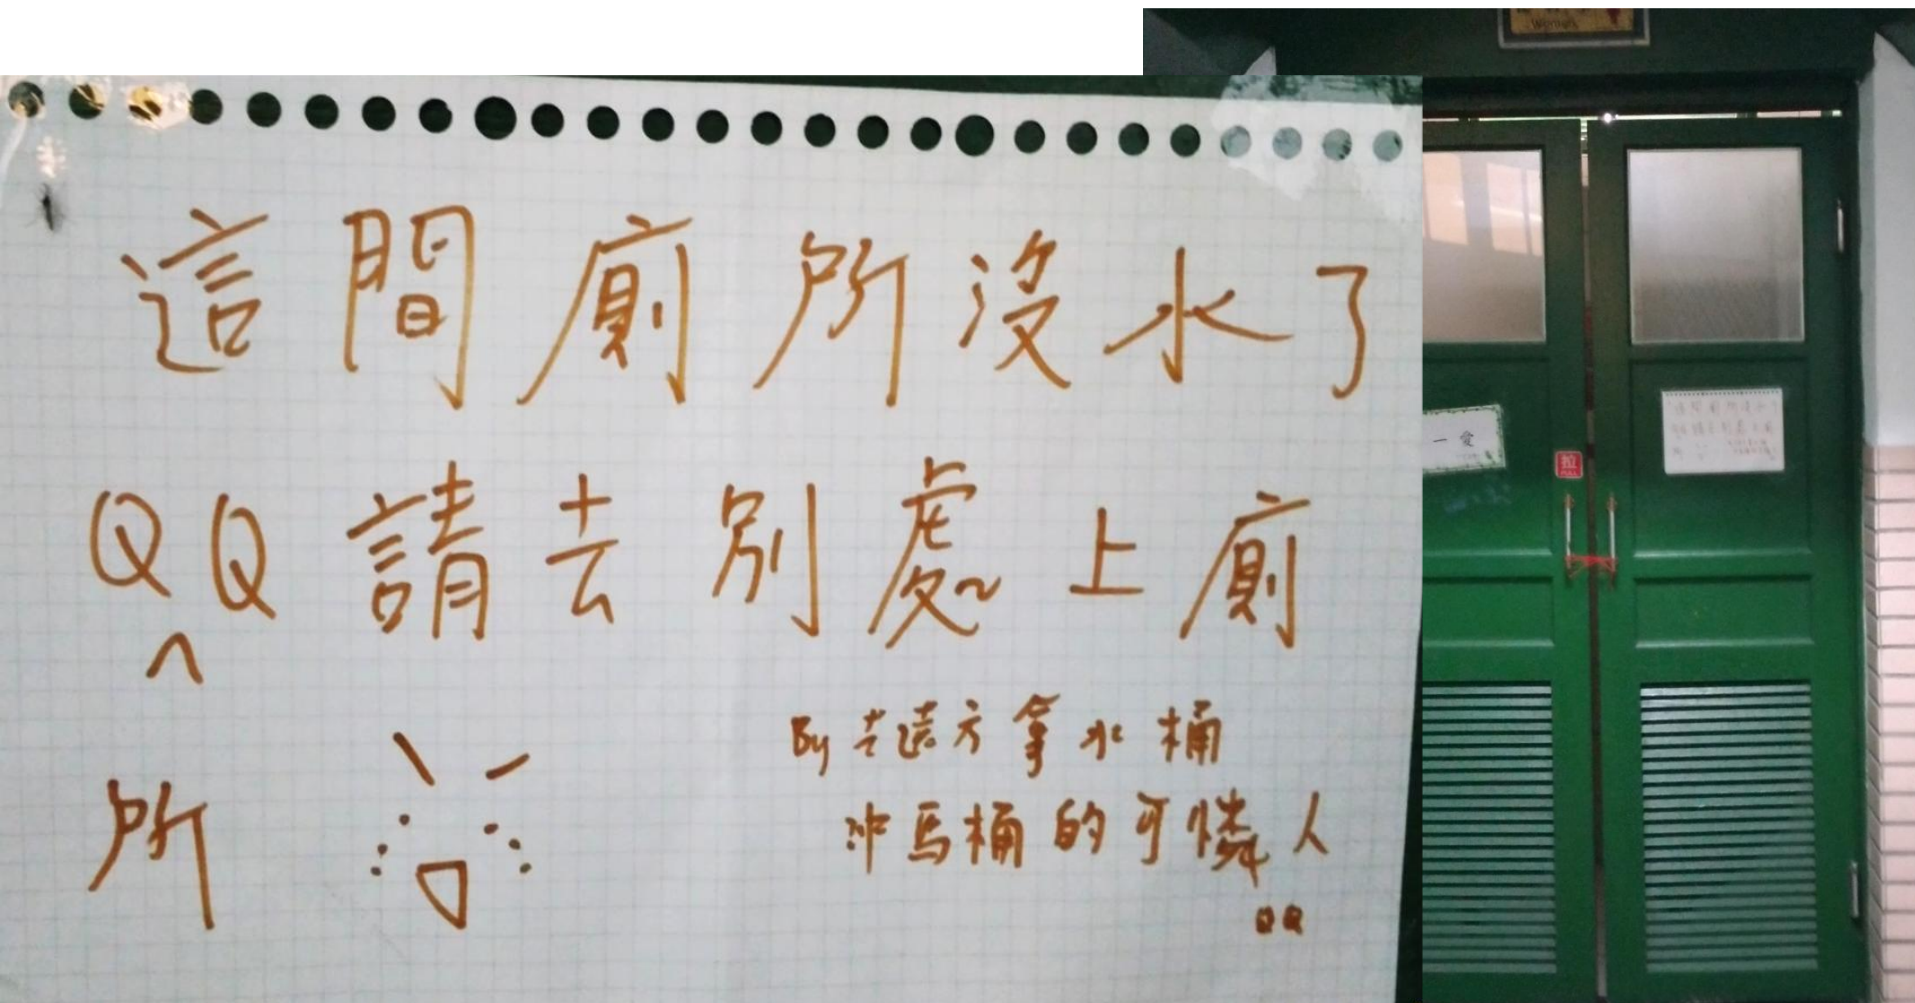 這間廁所沒水了
QQ請去別處上廁
所
By 去遠方拿水桶
沖馬桶的可憐人
QQ
Women
一愛
拉